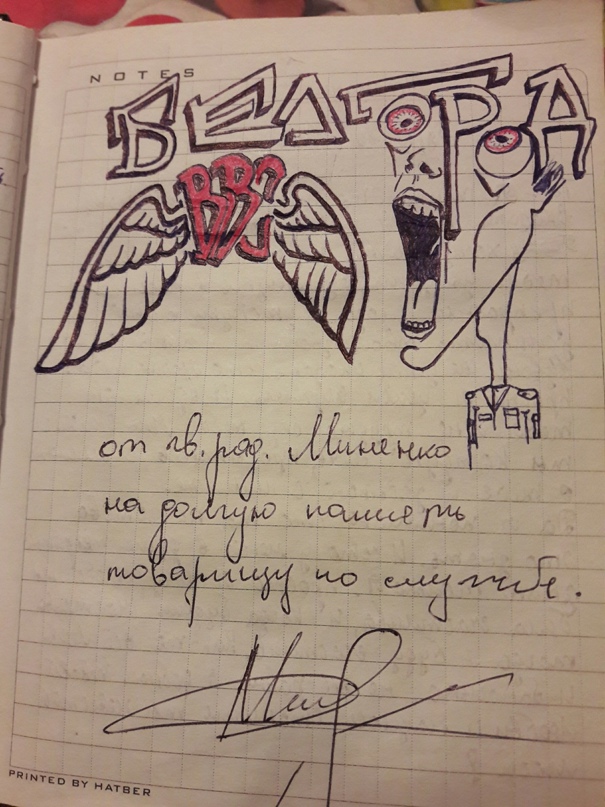 NOTES
БЕЛГОРОД
ВВС
от гв. ряд. Миненко
на долгую память
товарищу по службе.
PRINTED BY HATBER